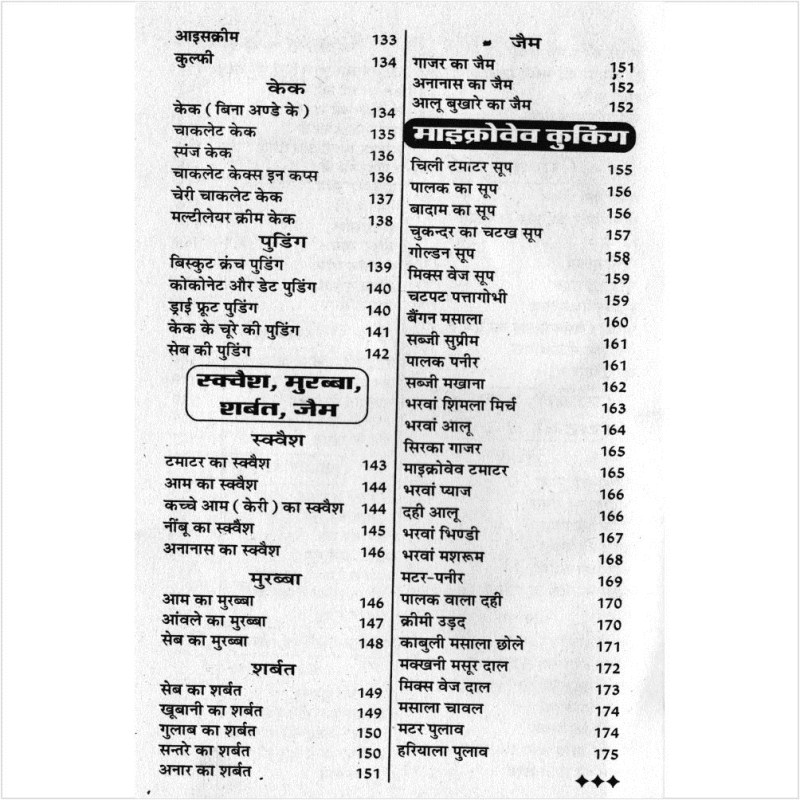 आइसक्रीम 133
कुल्फी 134
केक
केक ( बिना अण्डे के ) 134
चाकलेट केक 135
स्पंज केक 136
चाकलेट केक्स इन कप्स 136
चेरी चाकलेट केक 137
मल्टीलेयर क्रीम केक 138
पुडिंग
बिस्कुट क्रंच पुडिंग 139
कोकोनेट और डेट पुडिंग 140
ड्राई फ्रूट पुडिंग 140
केक के चूरे की पुडिंग 141
सेब की पुडिंग 142
स्क्वैश, मुरब्बा,
शर्बत, जैम
स्क्वैश
टमाटर का स्क्वैश 143
आम का स्क्वैश 144
कच्चे आम ( केरी ) का स्क्वैश 144
नींबू का स्क्वैश 145
अनानास का स्क्वैश 146
मुरब्बा
आम का मुरब्बा 146
आंवले का मुरब्बा 147
सेब का मुरब्बा 148
शर्बत
सेब का शर्बत 149
खूबानी का शर्बत 149
गुलाब का शर्बत 150
सन्तरे का शर्बत 150
अनार का शर्बत 151
जैम
गाजर का जैम 151
अनानास का जैम 152
आलू बुखारे का जैम 152
माइक्रोवेव कुकिंग
चिली टमाटर सूप 155
पालक का सूप 156
बादाम का सूप 156
चुकन्दर का चटख सूप 157
गोल्डन सूप 158
मिक्स वेज सूप 159
चटपट पत्तागोभी 159
बैंगन मसाला 160
सब्जी सुप्रीम 161
पालक पनीर 161
सब्जी मखाना 162
भरवां शिमला मिर्च 163
भरवां आलू 164
सिरका गाजर 165
माइक्रोवेव टमाटर 165
भरवां प्याज 166
दही आलू 166
भरवां भिण्डी 167
भरवां मशरूम 168
मटर-पनीर 169
पालक वाला दही 170
क्रीमी उड़द 170
काबुली मसाला छोले 171
मक्खनी मसूर दाल 172
मिक्स वेज दाल 173
मसाला चावल 174
मटर पुलाव 174
हरियाला पुलाव 175